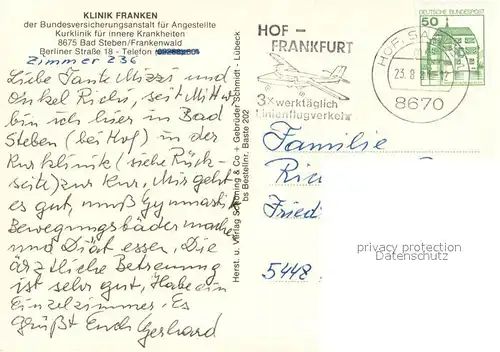 KLINIK FRANKEN
der Bundesversicherungsanstalt für Angestellte
Kurklinik für innere Krankheiten
8675 Bad Steben/Frankenwald
Berliner Straße 18 - Telefon
Zimmer 236
Liebe Tante Mizzi und
Onkel Richi, seit Mittw.
bin ich hier in Bad
Steben (bei Hof) in der
Kurklinik (siehe Rück-
seite) zur Kur. Mir geht
es gut, muß Gymnastik
Bewegungsbäder machen
und Diät essen. Die
ärztliche Betreuung
ist sehr gut, Habe ein
Einzelzimmer. Es
grüßt Euch Gerhard
Herst. u. Verlag Schöning & Co + Gebrüder Schmidt - Lübeck
bs Bestellnr. Baste 202
HOF -
FRANKFURT
3x werktäglich
Linienflugverkehr
HOF, SA
23.8.
8670
50 DEUTSCHE BUNDESPOST
Familie
Ri
Fried
5448
privacy protection
Datenschutz